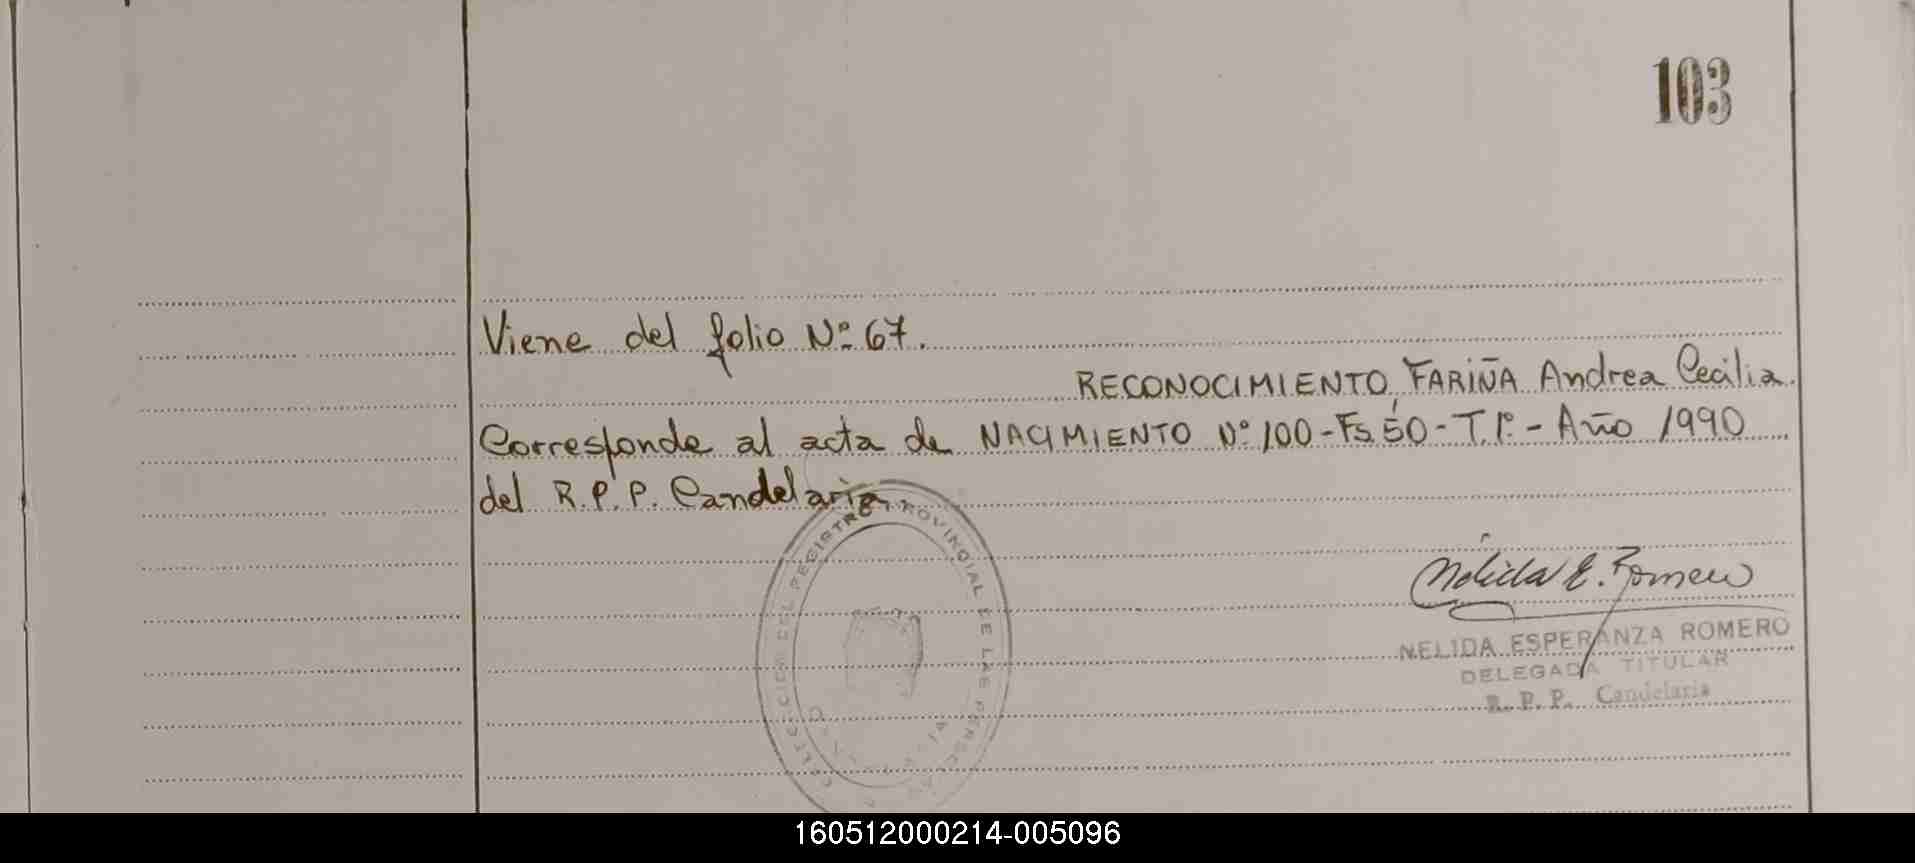 103
Viene del folio Nº 67.
RECONOCIMIENTO, FARIÑA Andrea Cecilia.
Corresponde al acta de NACIMIENTO Nº 100-Fs 50-T.1º-Año 1990
del R.P.P. Candelaria.
DELEGACION DEL REGISTRO PROVINCIAL DE LAS PERSONAS
Nélida E. Romero
NELIDA ESPERANZA ROMERO
DELEGADA TITULAR
R. P. P. Candelaria
160512000214-005096